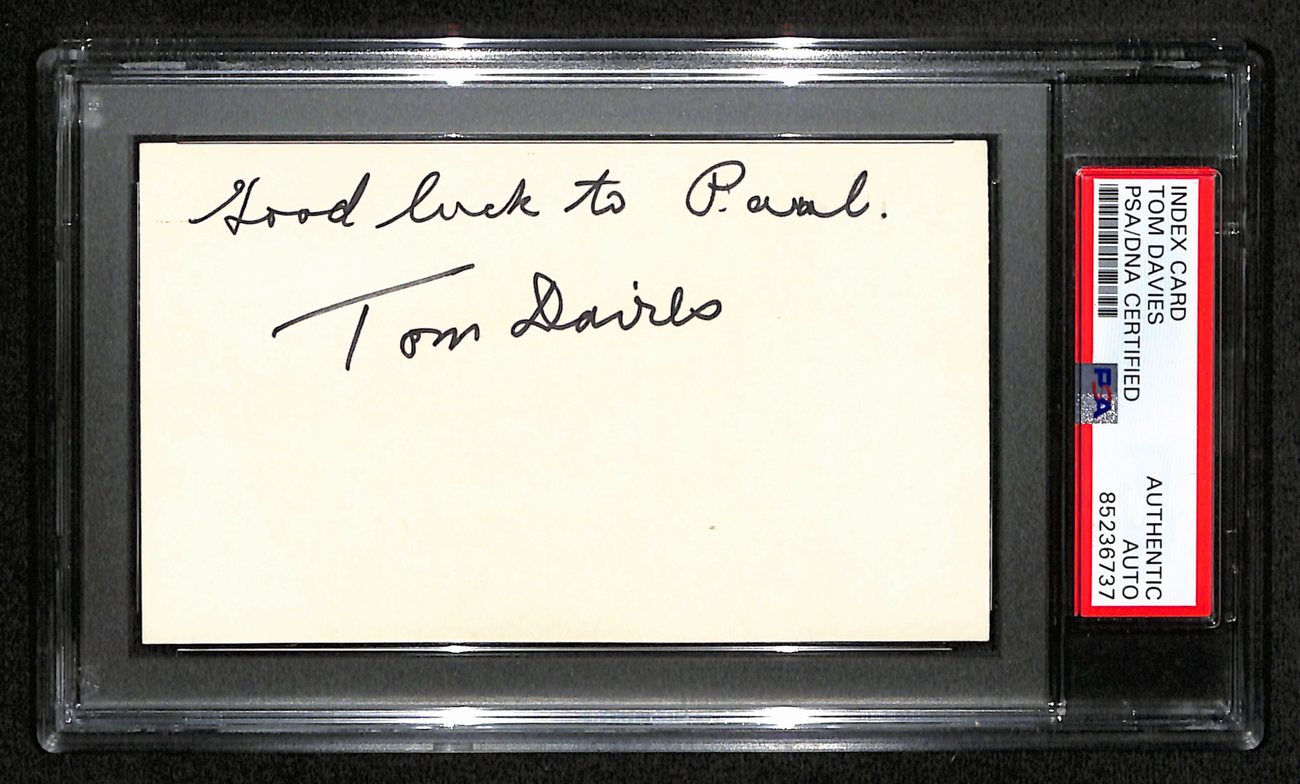 Good luck to Paul.
Tom Davies
INDEX CARD
TOM DAVIES
PSA/DNA CERTIFIED
PSA
AUTHENTIC
AUTO
85236737